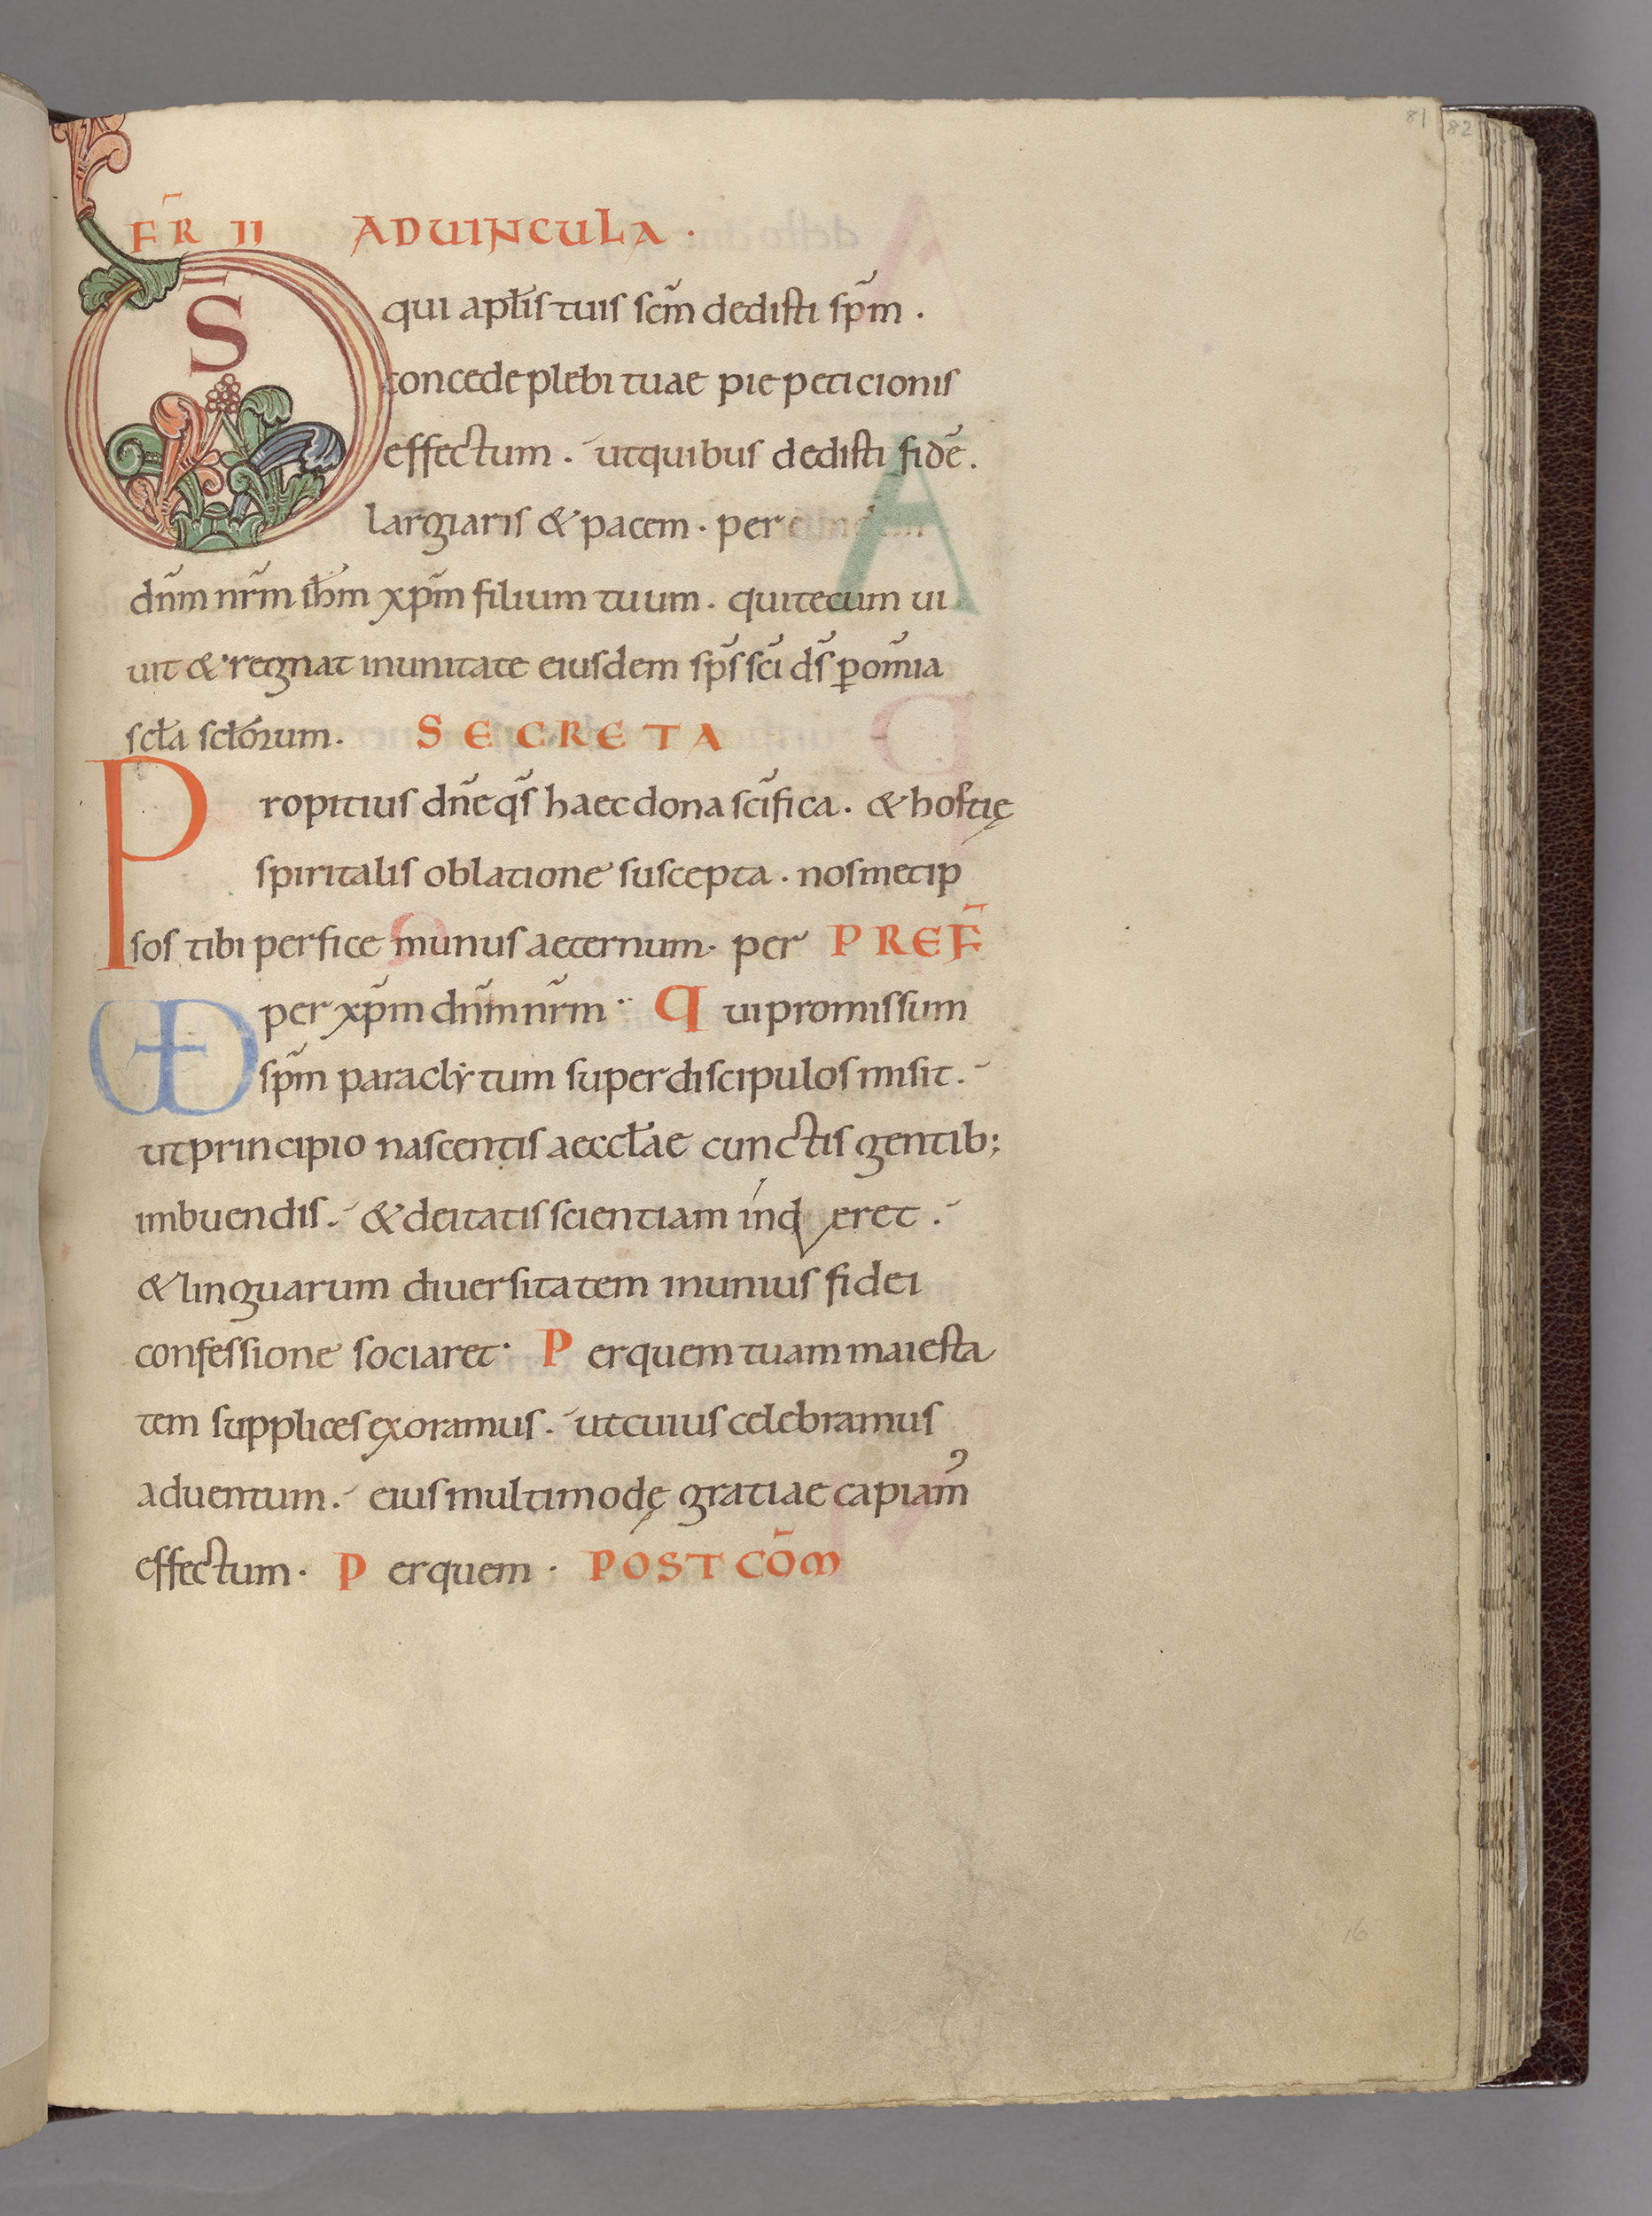 81
82
FR̄ II AD UINCULA ·
DS̄ qui apłis tuis scm̄ dedisti spm̄ .
concede plebi tuae pie peticionis
effectum . ut quibus dedisti fidē .
largiaris & pacem . per eundem
dnm̄ nrm̄ ihm̄ xpm̄ filium tuum . qui tecum ui
uit & regnat in unitate eiusdem sps̄ sci̅ ds̄ ꝑ om̄ia
scła scłorum . SECRETA
Propitius dnē qs̄ haec dona scīfica . & hostię
spiritalis oblatione suscepta . nosmetip
sos tibi perfice munus aeternum . per PREF̄
UD per xpm̄ dnm̄ nrm̄ Qui promissum
spm̄ paraclytum super discipulos misit .
ut principio nascentis aeccłae cunctis gentib;
imbuendis . & deitatis scientiam inderet .
& linguarum diuersitatem in unius fidei
confessione sociaret · Per quem tuam maiesta
tem supplices exoramus . ut cuius celebramus
aduentum . eius multimodę gratiae capiam᾿
effectum . Per quem · POST COM̄
16